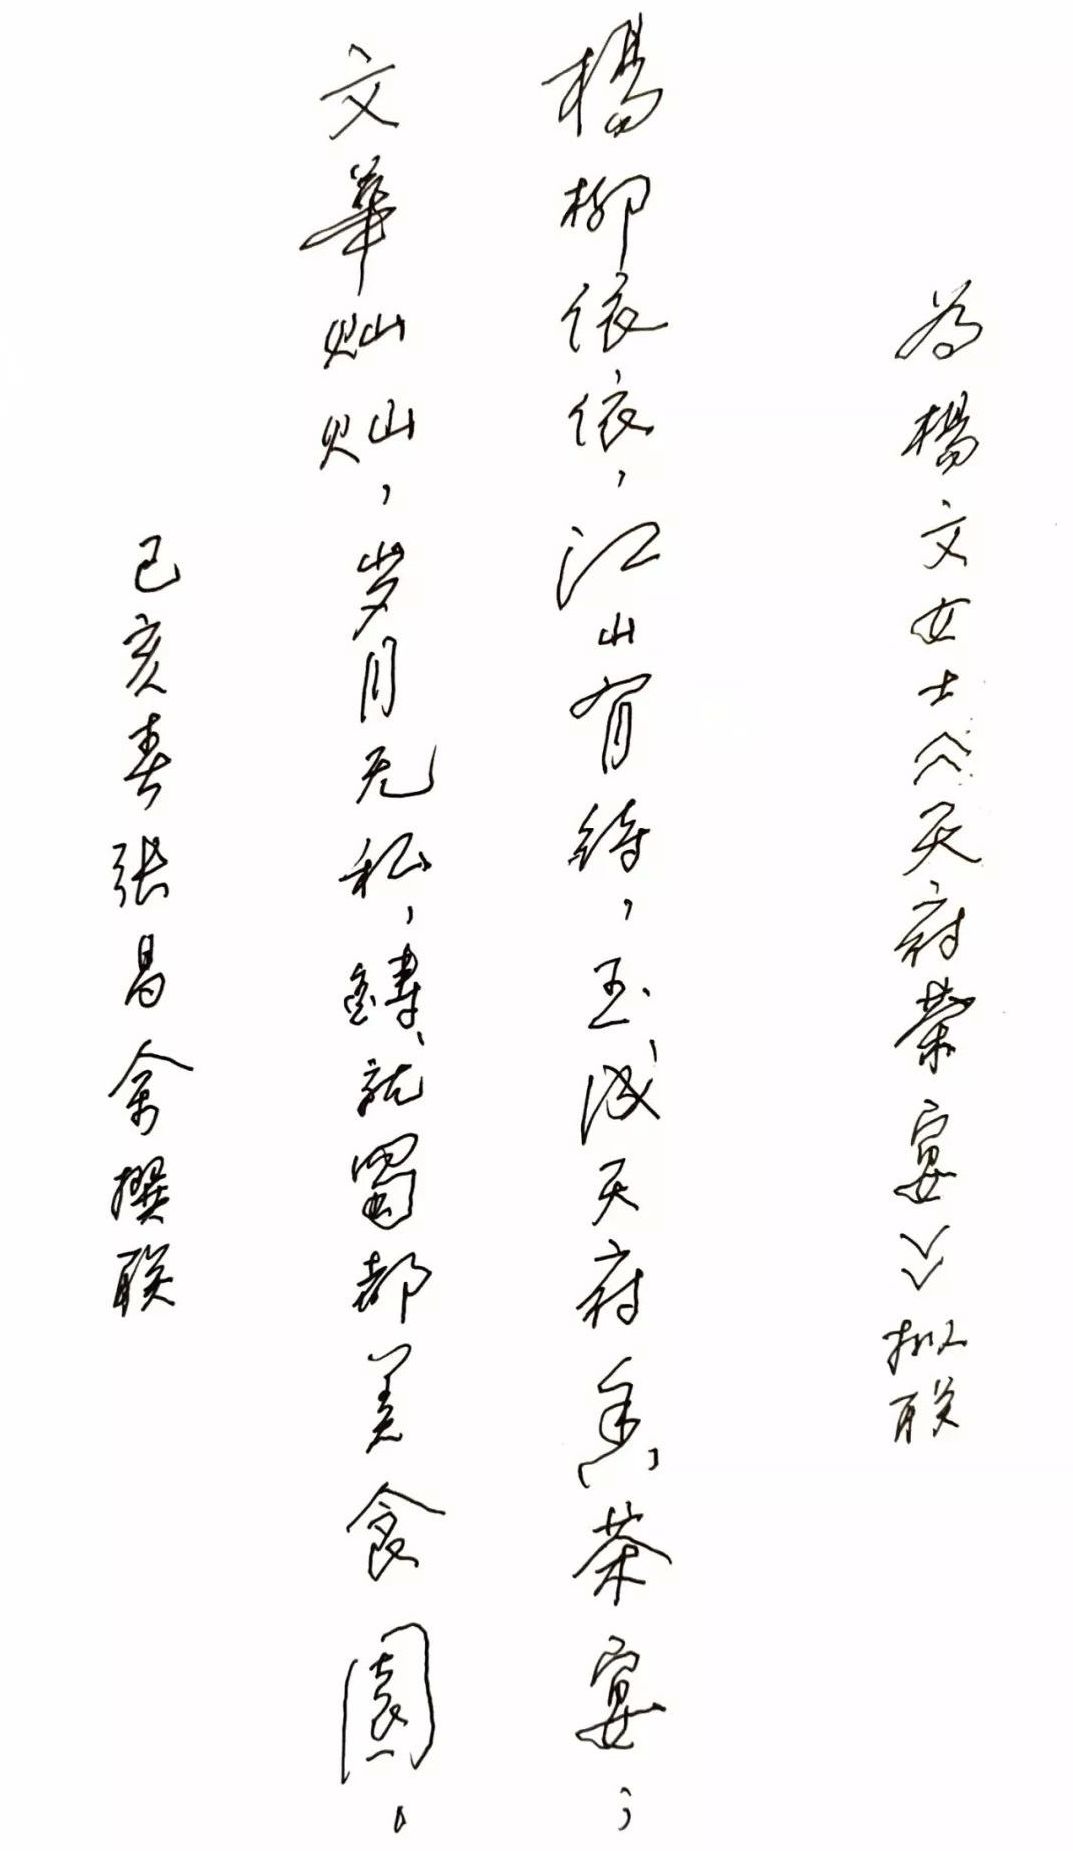 為楊文女士《天府茶宴》拟联
楊柳依依，江山有待，玉成天府香茶宴；
文華灿灿，岁月无私，鑄就蜀都美食園。
己亥春張昌余撰联